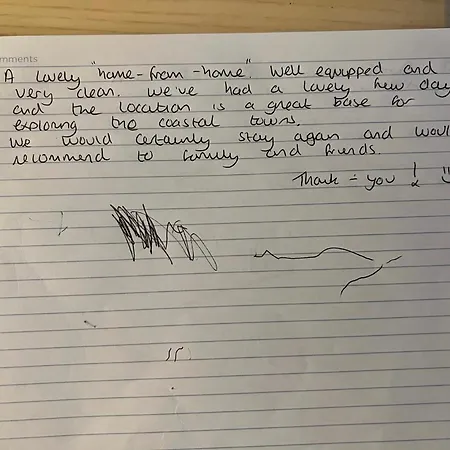 mments
A lovely "home-from-home". Well equipped and
very clean. We've had a lovely few day
and the location is a great base for
exploring the coastal towns.
We would certainly stay again and woul
recommend to family and friends.
Thank-you !